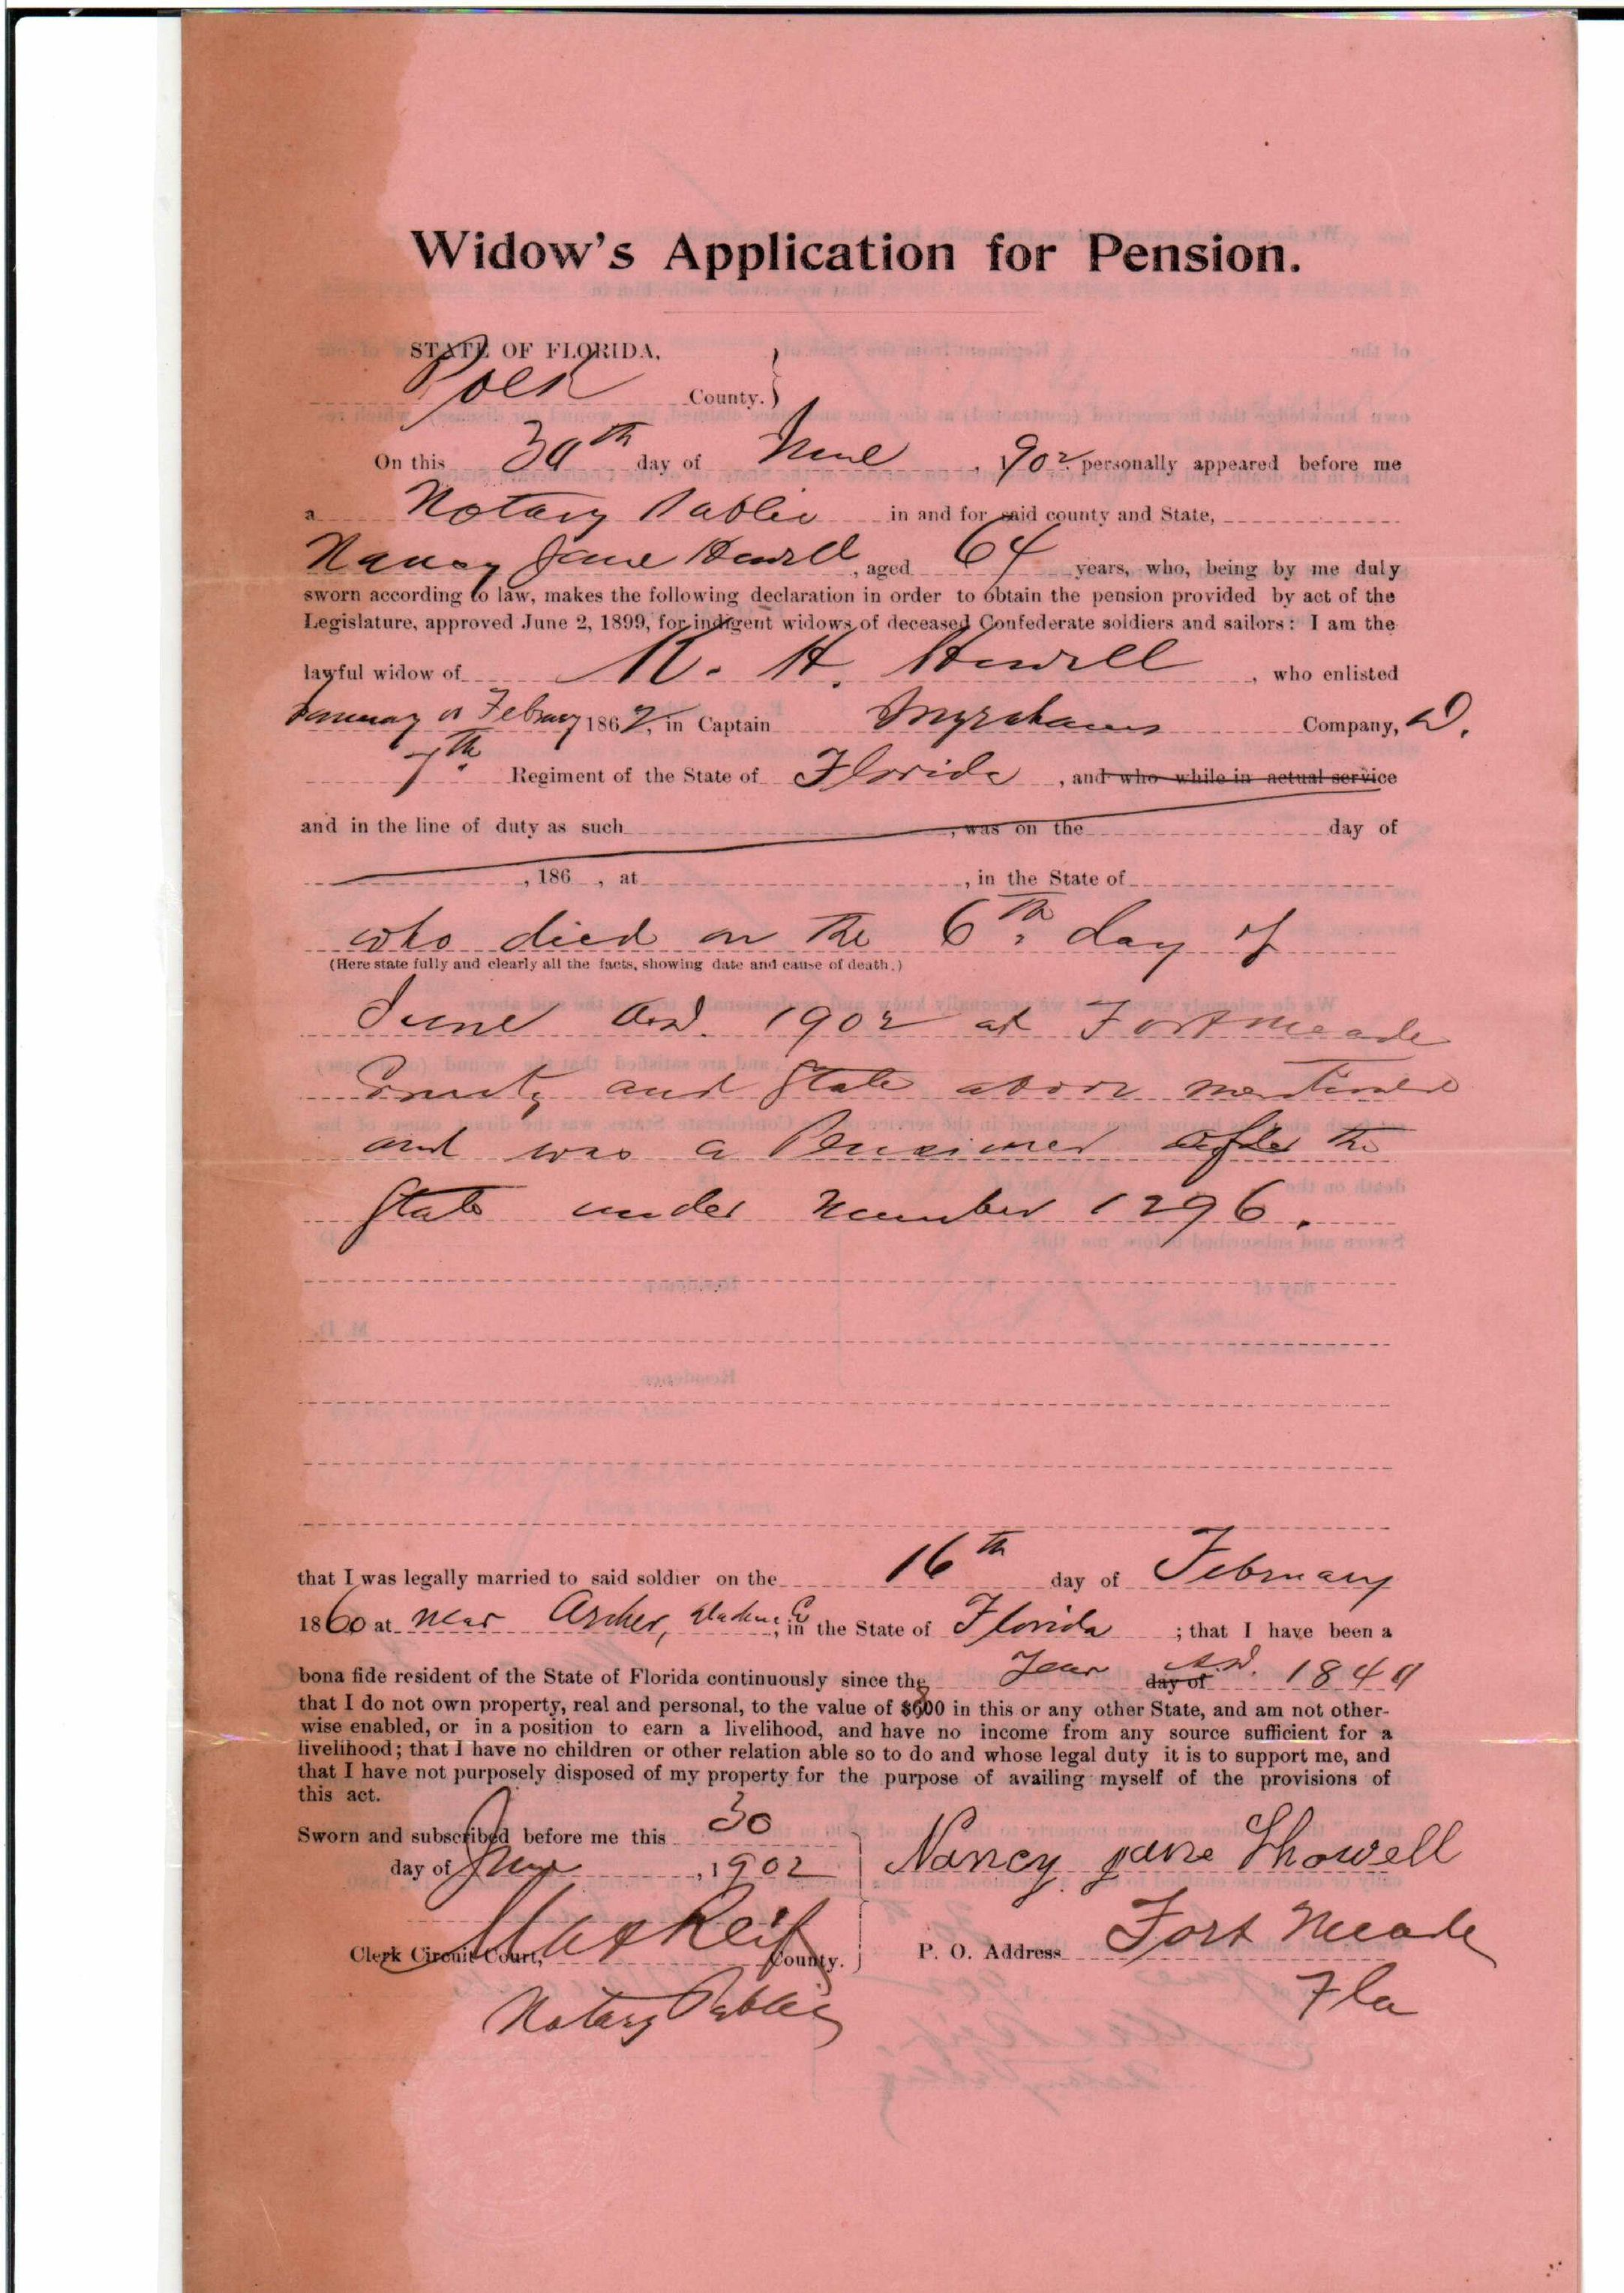 Widow's Application for Pension.
STATE OF FLORIDA,
Polk County. }
On this 30th day of June, 1902 personally appeared before me
a Notary Public in and for said county and State,
Nancy Jane Howell, aged 64 years, who, being by me duly
sworn according to law, makes the following declaration in order to obtain the pension provided by act of the
Legislature, approved June 2, 1899, for indigent widows of deceased Confederate soldiers and sailors: I am the
lawful widow of H. Howell, who enlisted
January or Februry 1862, in Captain Company, D.
7th. Regiment of the State of Florida, and who while in actual service
and in the line of duty as such , was on the day of
, 186 , at , in the State of
who died on the 6th. day of
(Here state fully and clearly all the facts, showing date and cause of death.)
June A.D. 1902 at Fort Meade
County and State above mentioned
and was a Pensioner the
State under Number 1296.
that I was legally married to said soldier on the 16th day of February
1860 at near Archer, in the State of Florida ; that I have been a
bona fide resident of the State of Florida continuously since the Year day of A.D.
that I do not own property, real and personal, to the value of $600 in this or any other State, and am not other-
wise enabled, or in a position to earn a livelihood, and have no income from any source sufficient for a
livelihood; that I have no children or other relation able so to do and whose legal duty it is to support me, and
that I have not purposely disposed of my property for the purpose of availing myself of the provisions of
this act.
Sworn and subscribed before me this 30
day of June, 1902
Nancy jane Howell
Max Reif
Clerk Circuit Court, County.
P. O. Address Fort Meade
Fla
Notary Public